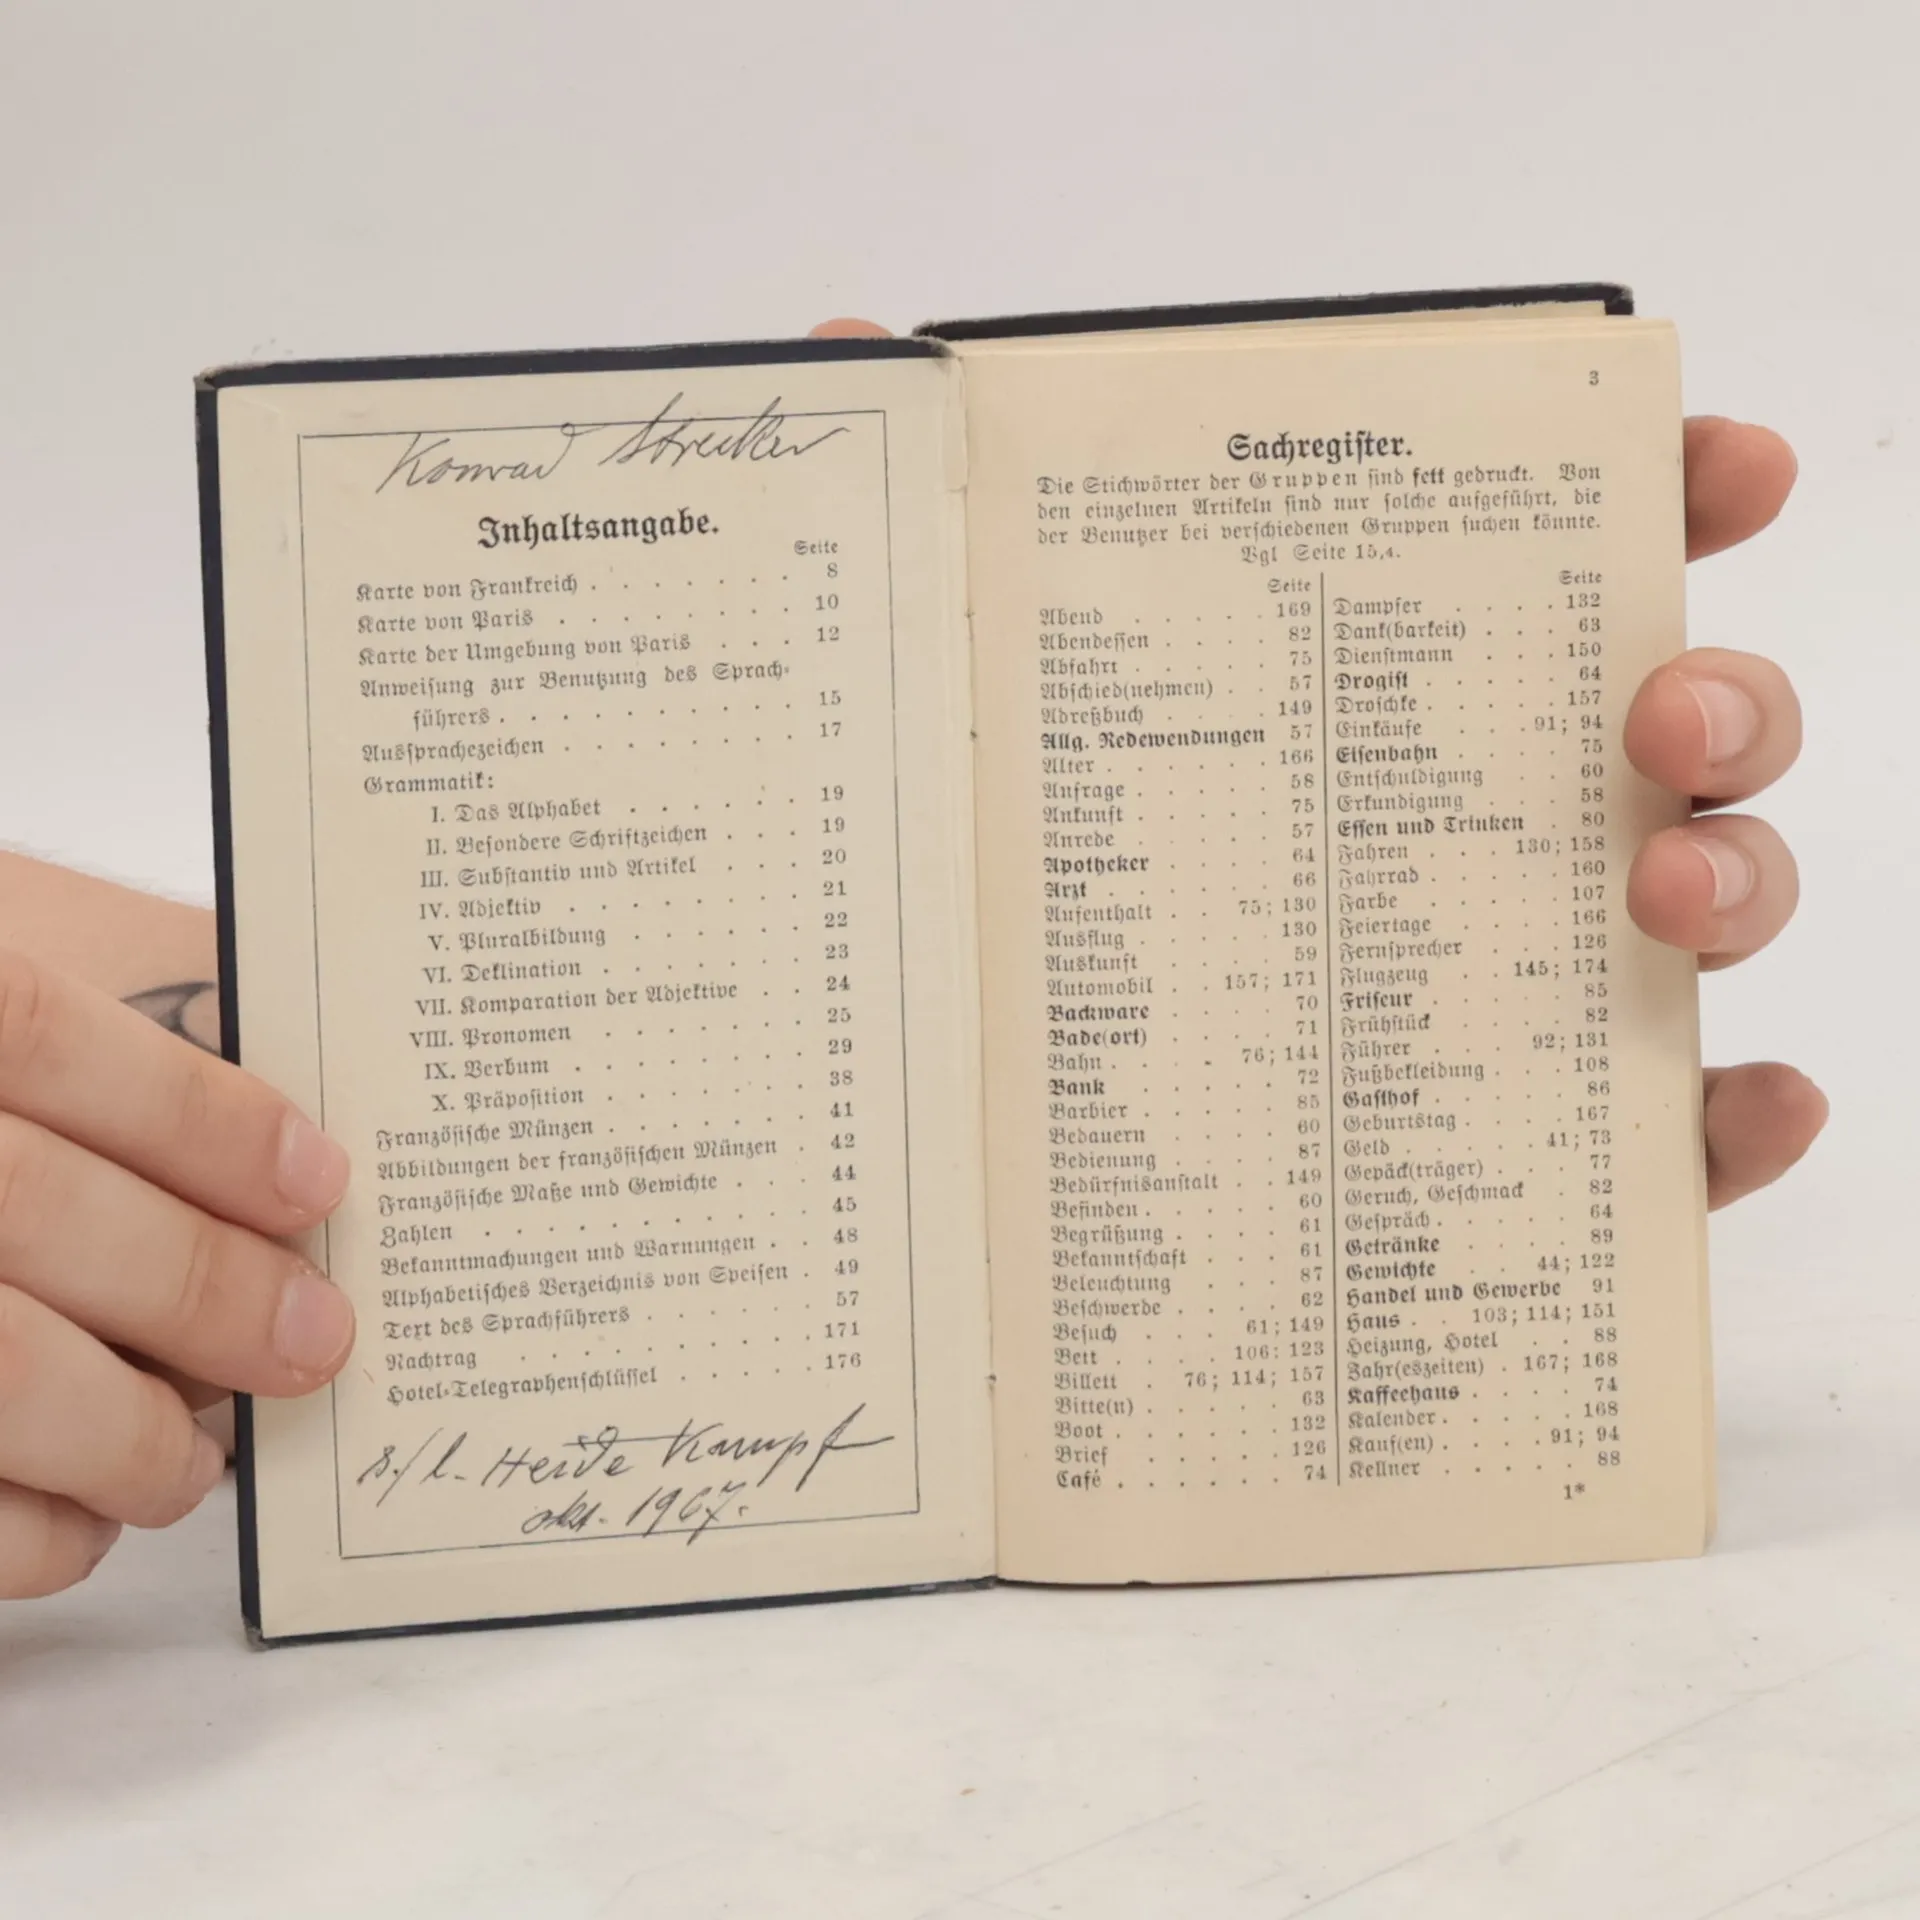 Konrad Strecker
Inhaltsangabe.
Seite
Karte von Frankreich . . . . . . . 8
Karte von Paris . . . . . . . . 10
Karte der Umgebung von Paris . . . 12
Anweisung zur Benutzung des Sprach-
führers . . . . . . . . . . 15
Aussprachezeichen . . . . . . . . 17
Grammatik:
I. Das Alphabet . . . . . . 19
II. Besondere Schriftzeichen . . . 19
III. Substantiv und Artikel . . . 20
IV. Adjektiv . . . . . . . . 21
V. Pluralbildung . . . . . . 22
VI. Deklination . . . . . . . 23
VII. Komparation der Adjektive . . 24
VIII. Pronomen . . . . . . . 25
IX. Verbum . . . . . . . . 29
X. Präposition . . . . . . . 38
Französische Münzen . . . . . . . 41
Abbildungen der französischen Münzen . 42
Französische Maße und Gewichte . . . 44
Zahlen . . . . . . . . . . . 45
Bekanntmachungen und Warnungen . . 48
Alphabetisches Verzeichnis von Speisen . 49
Text des Sprachführers . . . . . . 57
Nachtrag . . . . . . . . . . 171
Hotel-Telegraphenschlüssel . . . . . 176
Heide Kampf
okt. 1967.
3
Sachregister.
Die Stichwörter der Gruppen sind fett gedruckt. Von
den einzelnen Artikeln sind nur solche aufgeführt, die
der Benutzer bei verschiedenen Gruppen suchen könnte.
Vgl Seite 15,4.
Seite
Abend . . . . . 169
Abendessen . . . . 82
Abfahrt . . . . . 75
Abschied(nehmen) . . 57
Adreßbuch . . . . 149
Allg. Redewendungen 57
Alter . . . . . . 166
Anfrage . . . . . 58
Ankunft . . . . . 75
Anrede . . . . . 57
Apotheker . . . . 64
Arzt . . . . . . 66
Aufenthalt . . 75; 130
Ausflug . . . . . 130
Auskunft . . . . 59
Automobil . . 157; 171
Backware . . . . 70
Bade(ort) . . . . 71
Bahn . . . 76; 144
Bank . . . . . 72
Barbier . . . . . 85
Bedauern . . . . 60
Bedienung . . . . 87
Bedürfnisanstalt . . 149
Befinden . . . . . 60
Begrüßung . . . . 61
Bekanntschaft . . . 61
Beleuchtung . . . 87
Beschwerde . . . . 62
Besuch . . . 61; 149
Bett . . . . 106; 123
Billett . 76; 114; 157
Bitte(n) . . . . . 63
Boot . . . . . . 132
Brief . . . . . 126
Café . . . . . . 74
Seite
Dampfer . . . . 132
Dank(barkeit) . . . 63
Dienstmann . . . 150
Drogist . . . . . 64
Droschke . . . . . 157
Einkäufe . . . 91; 94
Eisenbahn . . . . 75
Entschuldigung . . 60
Erkundigung . . . 58
Essen und Trinken . 80
Fahren . . . 130; 158
Fahrrad . . . . . 160
Farbe . . . . . 107
Feiertage . . . . 166
Fernsprecher . . . 126
Flugzeug . . 145; 174
Friseur . . . . . 85
Frühstück . . . . 82
Führer . . . 92; 131
Fußbekleidung . . . 108
Gasthof . . . . . 86
Geburtstag . . . . 167
Geld . . . . . 41; 73
Gepäck(träger) . . . 77
Geruch, Geschmack . 82
Gespräch . . . . . 64
Getränke . . . . 89
Gewichte . . 44; 122
Handel und Gewerbe 91
Haus . . 103; 114; 151
Heizung, Hotel . . 88
Jahr(eszeiten) . 167; 168
Kaffeehaus . . . . 74
Kalender . . . . . 168
Kauf(en) . . . . 91; 94
Kellner . . . . . 88
1*